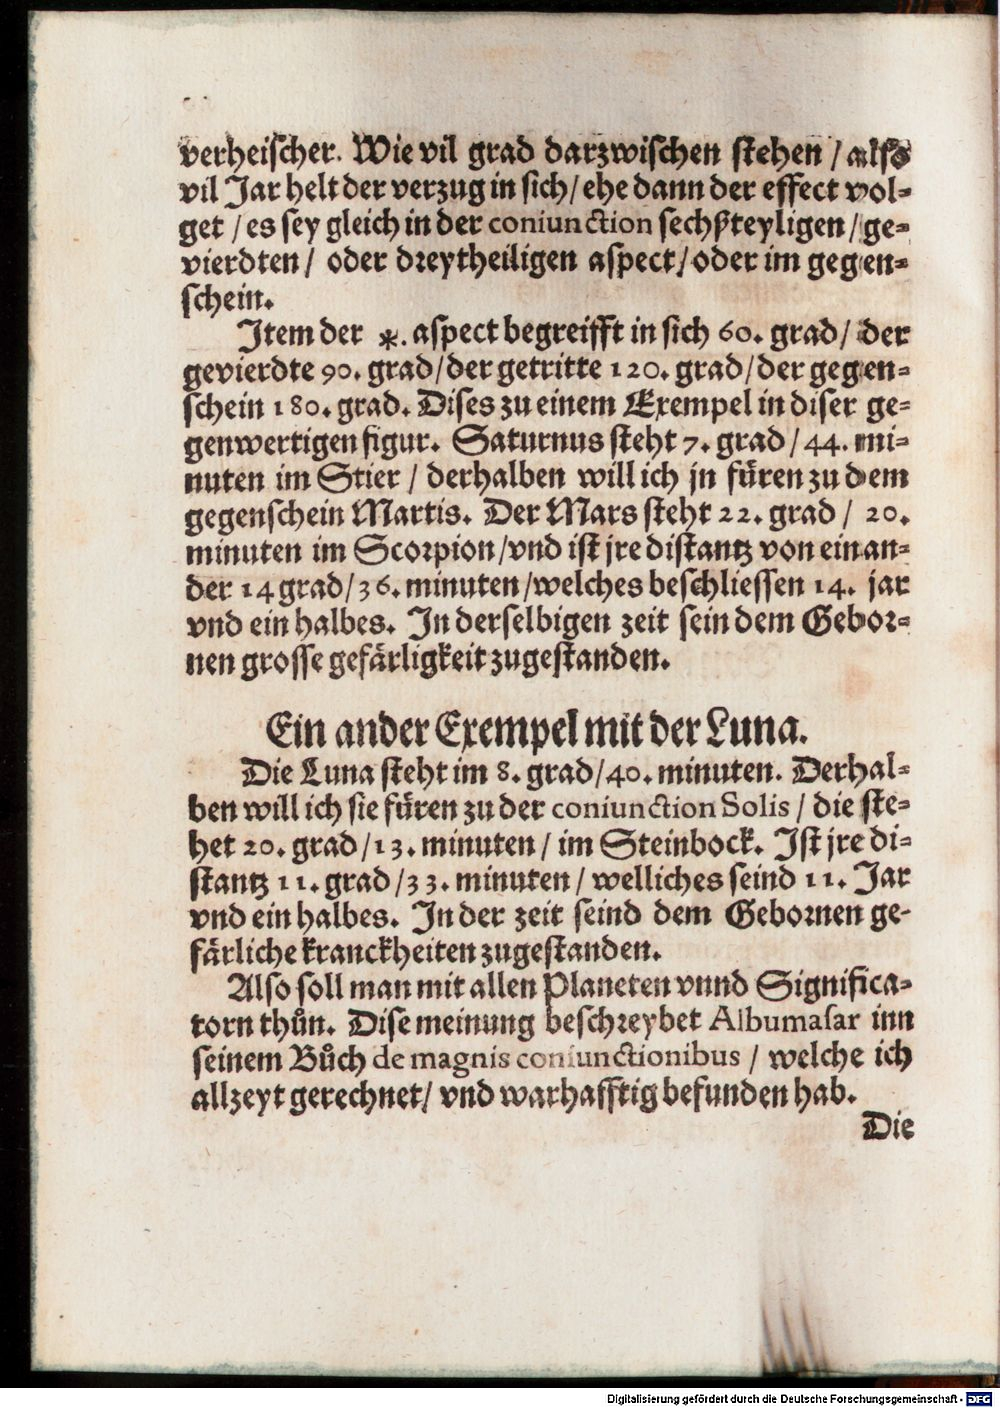 verheischer. Wie vil grad darzwischen stehen / also
vil Jar helt der verzug in sich / ehe dann der effect vol-
get / es sey gleich in der coniunction sechßteyligen / ge-
vierdten / oder dreytheiligen aspect / oder im gegen-
schein.
Item der ⚹. aspect begreifft in sich 60. grad / der
gevierdte 90. grad / der getritte 120. grad / der gegen-
schein 180. grad. Dises zu einem Exempel in diser ge-
genwertigen figur. Saturnus steht 7. grad / 44. mi-
nuten im Stier / derhalben will ich jn füren zu dem
gegenschein Martis. Der Mars steht 22. grad / 20.
minuten im Scorpion / vnd ist jre distantz von einan-
der 14 grad / 36. minuten / welches beschliessen 14. jar
vnd ein halbes. In derselbigen zeit sein dem Gebor-
nen grosse gefärligkeit zugestanden.
Ein ander Exempel mit der Luna.
Die Luna steht im 8. grad / 40. minuten. Derhal-
ben will ich sie füren zu der coniunction Solis / die ste-
het 20. grad / 13. minuten / im Steinbock. Ist jre di-
stantz 11. grad / 33. minuten / welliches seind 11. Jar
vnd ein halbes. In der zeit seind dem Gebornen ge-
färliche kranckheiten zugestanden.
Also soll man mit allen Planeten vnnd Significa-
torn thůn. Dise meinung beschreybet Albumasar inn
seinem Bůch de magnis coniunctionibus / welche ich
allzeyt gerechnet / vnd warhafftig befunden hab.
Die
Digitalisierung gefördert durch die Deutsche Forschungsgemeinschaft - DFG